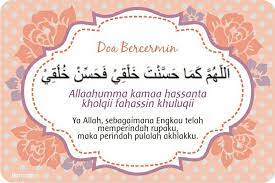 Doa Bercermin
اَللّٰهُمَّ كَمَا حَسَّنْتَ خَلْقِيْ فَحَسِّنْ خُلُقِيْ
Allaahumma kamaa hassanta
kholqii fahassin khuluqii
Ya Allah, sebagaimana Engkau telah
memperindah rupaku,
maka perindah pulalah akhlakku.